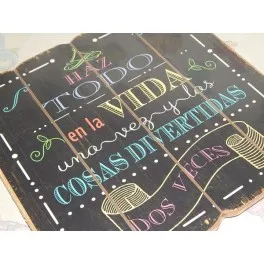 HAZ
TODO
en la VIDA
una vez y las
COSAS DIVERTIDAS
DOS VECES